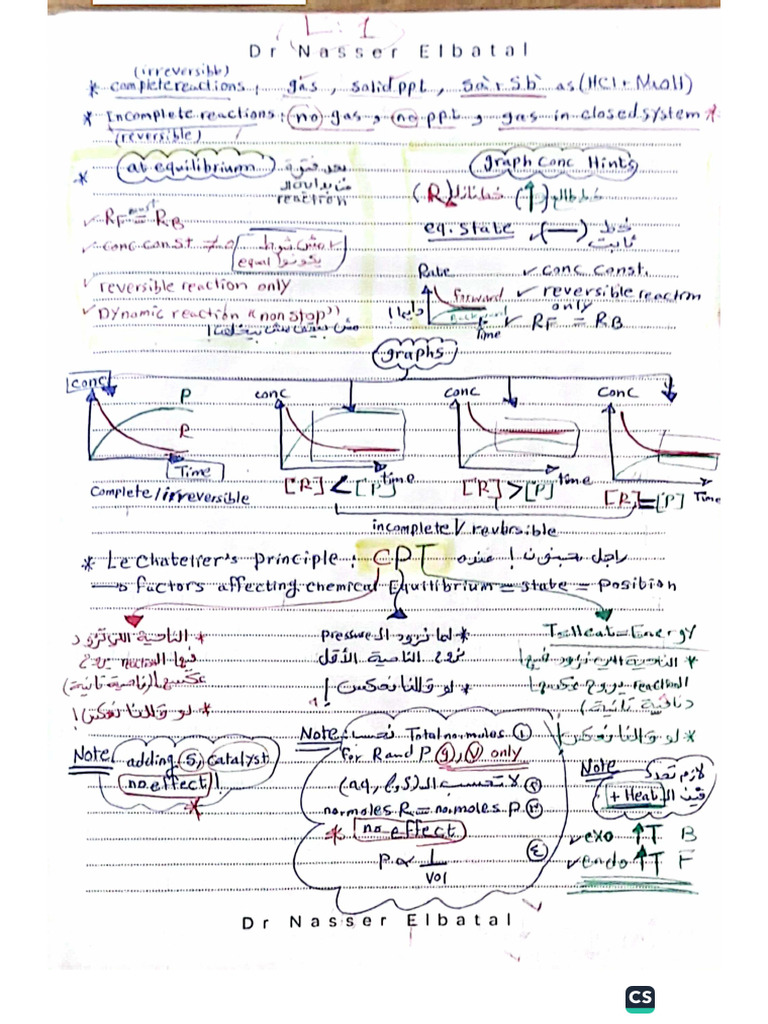 L: 1
Dr Nasser Elbatal
(irreversible)
* complete reactions : gas , solid ppt , Sa + Sb as (HCl + NaOH)
* Incomplete reactions : no gas , no ppt , gas in closed system *
(reversible)
* at equilibrium
reaction
✓ RF = RB
✓ conc const ≠ 0 مش شرط
يكونوا equal
✓ reversible reaction only
✓ Dynamic reaction "non stop"
graph Conc Hints
(R) خط نازل (↑) خط طالع
eq. state ✓ (—) خط
ثابت
✓ conc const.
✓ reversible reaction
only
✓ RF = RB
Rate
forward
Time
graphs
conc
P
R
Time
Complete/irreversible
conc
time
[R] < [P]
conc
time
[R] > [P]
Conc
Time
[R] = [P]
incomplete / reversible
* Le Chatelier's principle : CPT راجل عنده
→ factors affecting chemical Equilibrium = state = position
* الناحية اللي تزود
فيها الـ reaction يروح
عكسها (ناحية تانية)
* لو قالنا نعكس!
* لما نزود الـ Pressure
نروح الناحية الأقل
* لو قالنا نعكس !
T = Heat = Energy
* الناحية اللي نزود فيها
reaction يروح عكسها
* لو قالنا نعكس
Note adding (S), Catalyst
no effect !
*
Note ① Total no moles نحسب
for R and P (g), (v) only
② لا تحسب الـ (aq, l, s)
③ no moles R = no moles P
* no effect
④ P ∝ 1
Vol
Note لازم تحدد
فين الـ + Heat
✓ exo ↑T B
✓ endo ↑T F
Dr Nasser Elbatal
CS